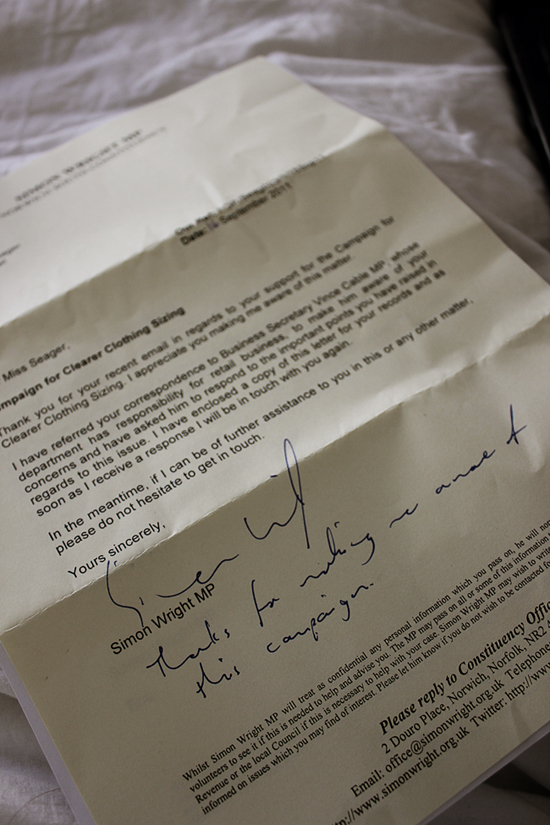 SIMON WRIGHT MP
Seager
Date: September 2011
Miss Seager,
Campaign for Clearer Clothing Sizing
Thank you for your recent email in regards to your support for the Campaign for
Clearer Clothing Sizing. I appreciate you making me aware of this matter.
I have referred your correspondence to Business Secretary Vince Cable MP, whose
department has responsibility for retail business, to make him aware of your
concerns and have asked him to respond to the important points you have raised in
regards to this issue. I have enclosed a copy of this letter for your records and as
soon as I receive a response I will be in touch with you again.
In the meantime, if I can be of further assistance to you in this or any other matter,
please do not hesitate to get in touch.
Yours sincerely,
Simon Wright MP
Thanks for making me aware of
this campaign.
Whilst Simon Wright MP will treat as confidential any personal information which you pass on, he will nor
volunteers to see it if this is needed to help and advise you. The MP may pass on all or some of this information
Revenue or the local Council if this is necessary to help with your case. Simon Wright MP may wish to write
informed on issues which you may find of interest. Please let him know if you do not wish to be contacted for
Please reply to Constituency Offic
2 Douro Place, Norwich, Norfolk, NR2 4
Email: office@simonwright.org.uk Telephone
http://www.simonwright.org.uk Twitter: http://ww